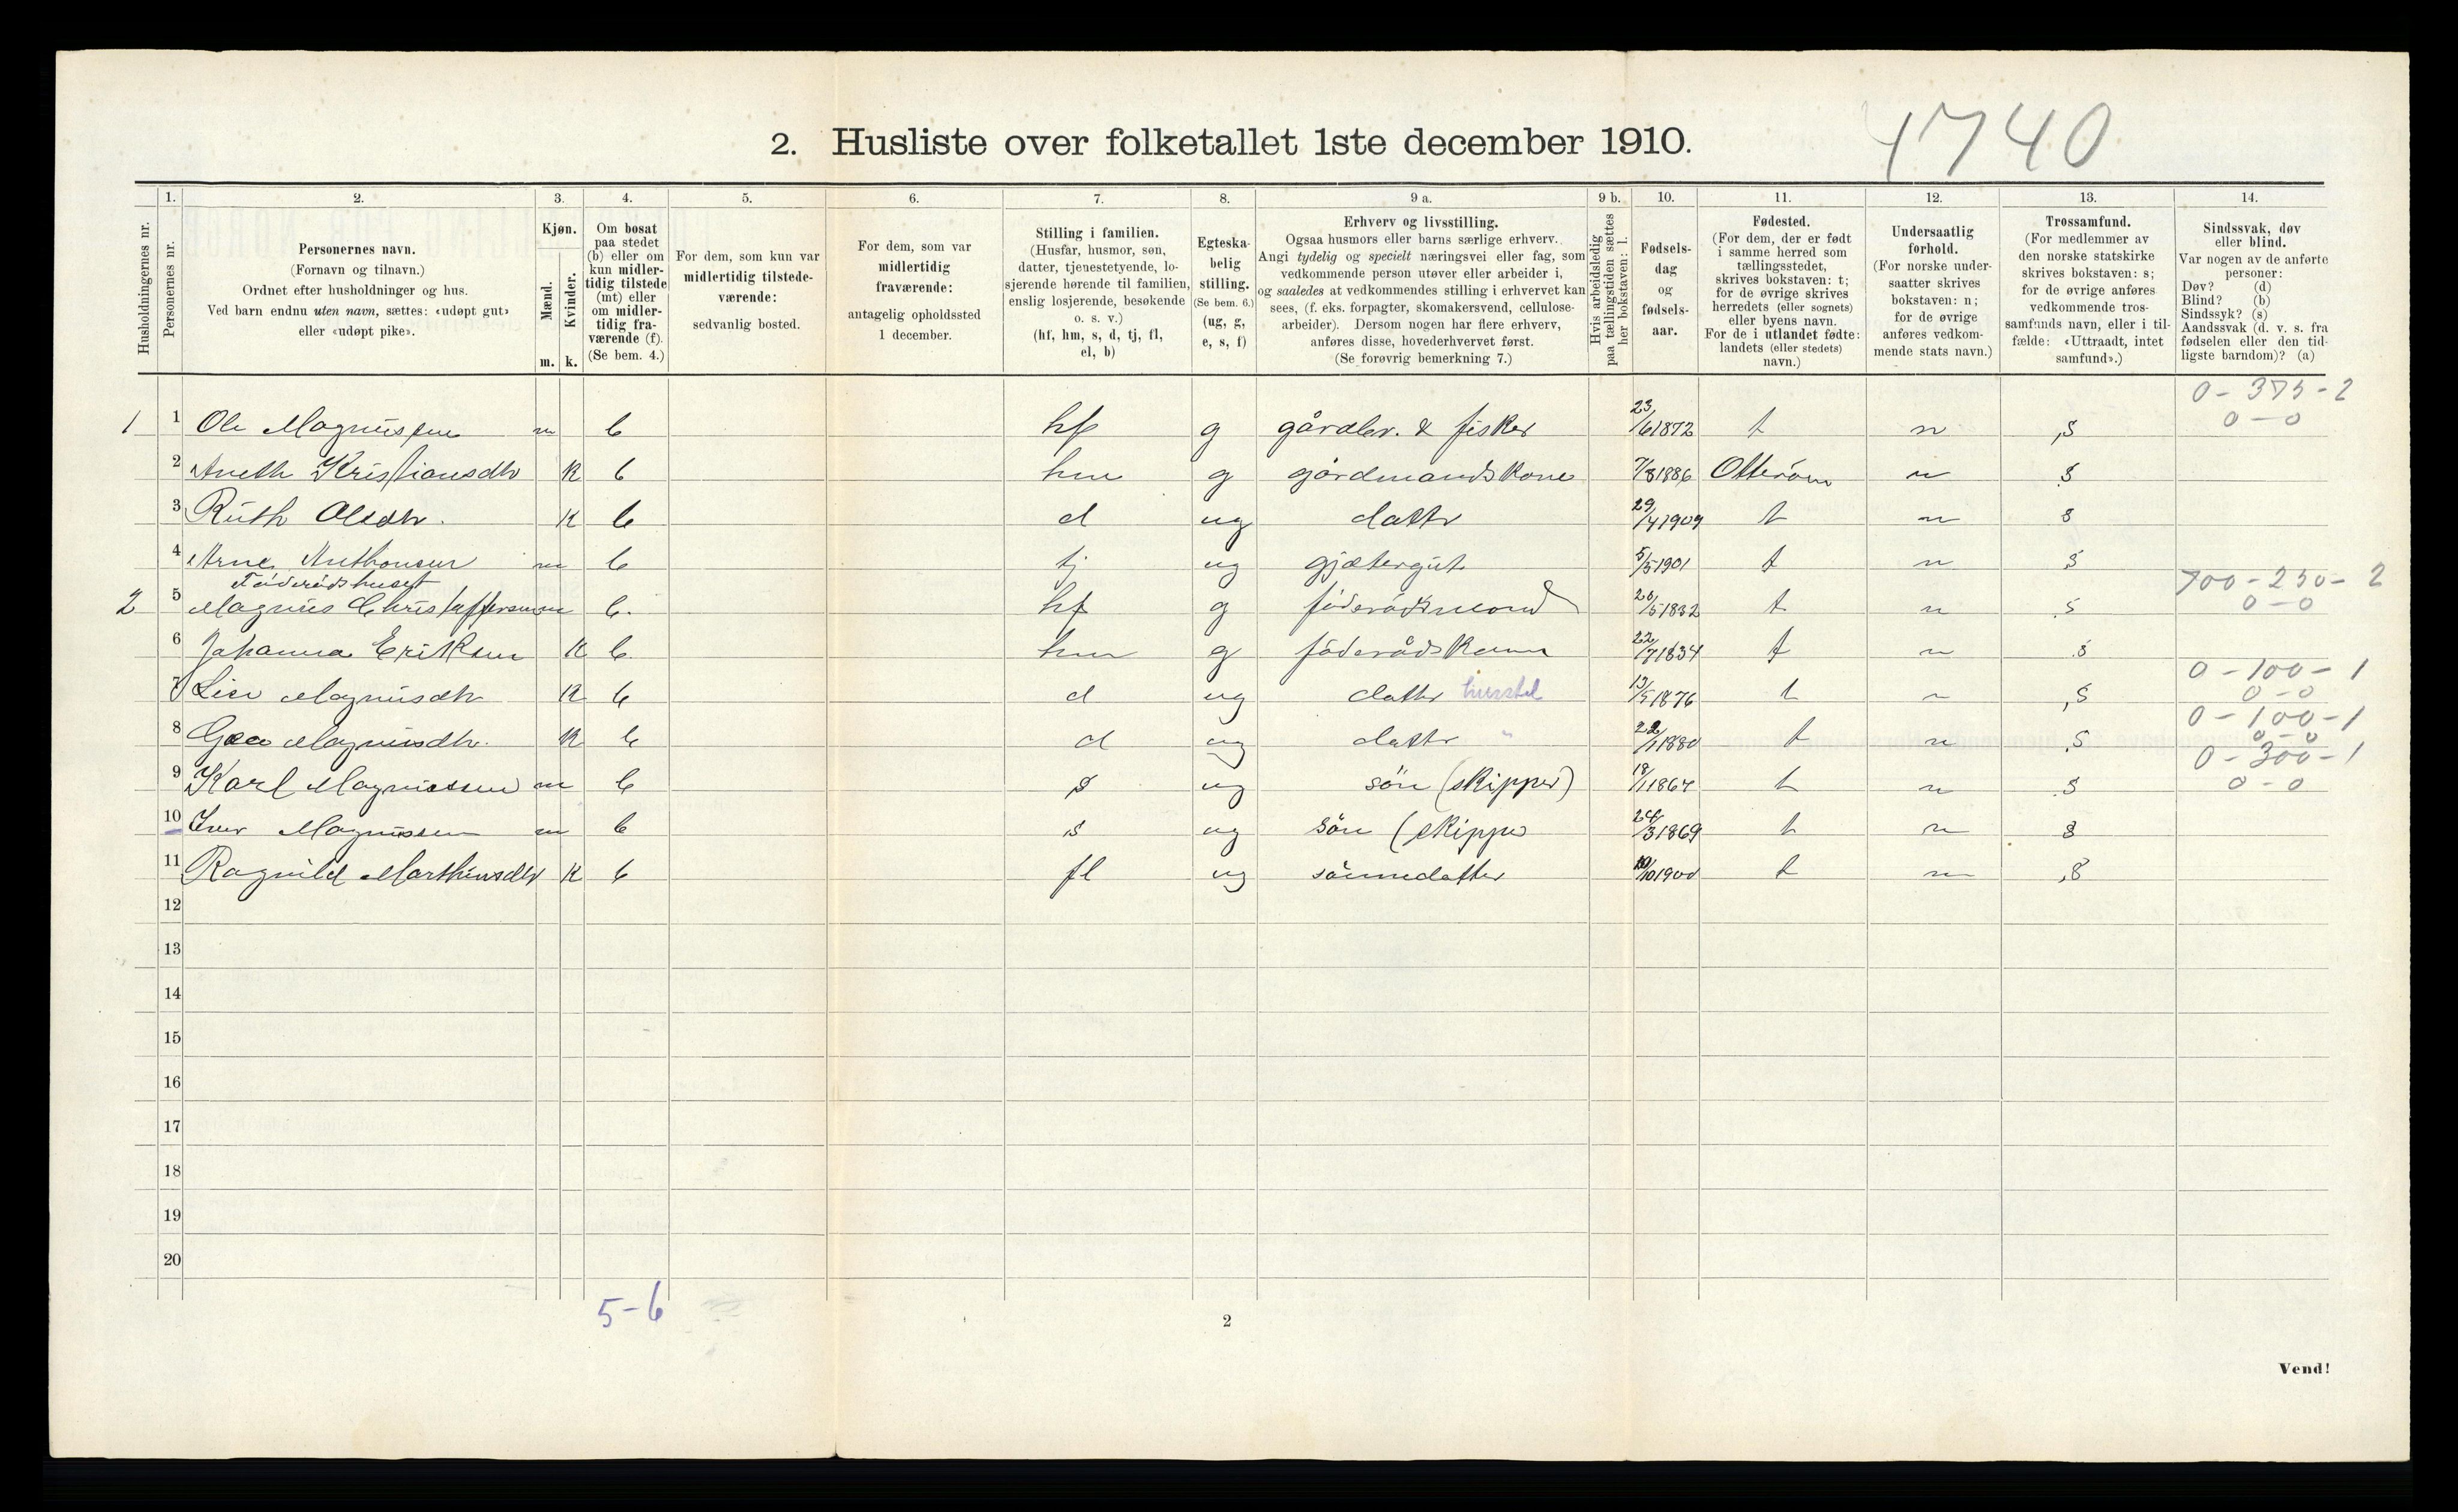 2. Husliste over folketallet 1ste december 1910.
4740
Husholdningernes nr.
1. Personernes nr.
2. Personernes navn.
(Fornavn og tilnavn.)
Ordnet efter husholdninger og hus.
Ved barn endnu uten navn, sættes: «udøpt gut»
eller «udøpt pike».
3. Kjøn.
Mænd. m.
Kvinder. k.
4. Om bosat
paa stedet
(b) eller om
kun midler-
tidig tilstede
(mt) eller
om midler-
tidig fra-
værende (f).
(Se bem. 4.)
5. For dem, som kun var
midlertidig tilstede-
værende:
sedvanlig bosted.
6. For dem, som var
midlertidig
fraværende:
antagelig opholdssted
1 december.
7. Stilling i familien.
(Husfar, husmor, søn,
datter, tjenestetyende, lo-
sjerende hørende til familien,
enslig losjerende, besøkende
o. s. v.)
(hf, hm, s, d, tj, fl,
el, b)
8. Egteska-
belig
stilling.
(Se bem. 6.)
(ug, g,
e, s, f)
9 a. Erhverv og livsstilling.
Ogsaa husmors eller barns særlige erhverv.
Angi tydelig og specielt næringsvei eller fag, som
vedkommende person utøver eller arbeider i,
og saaledes at vedkommendes stilling i erhvervet kan
sees, (f. eks. forpagter, skomakersvend, cellulose-
arbeider). Dersom nogen har flere erhverv,
anføres disse, hovederhvervet først.
(Se forøvrig bemerkning 7.)
9 b. Hvis arbeidsledig
paa tællingstiden sættes
her bokstaven: l.
10. Fødsels-
dag
og
fødsels-
aar.
11. Fødested.
(For dem, der er født
i samme herred som
tællingsstedet,
skrives bokstaven: t;
for de øvrige skrives
herredets (eller sognets)
eller byens navn.
For de i utlandet fødte:
landets (eller stedets)
navn.)
12. Undersaatlig
forhold.
(For norske under-
saatter skrives
bokstaven: n;
for de øvrige
anføres vedkom-
mende stats navn.)
13. Trossamfund.
(For medlemmer av
den norske statskirke
skrives bokstaven: s;
for de øvrige anføres
vedkommende tros-
samfunds navn, eller i til-
fælde: «Uttraadt, intet
samfund».)
14. Sindssvak, døv
eller blind.
Var nogen av de anførte
personer:
Døv? (d)
Blind? (b)
Sindssyk? (s)
Aandssvak (d. v. s. fra
fødselen eller den tid-
ligste barndom)? (a)
0 - 375 - 2
1 1 Ole Magnussen m b hf g gårdbr. & fisker 23/6 1872 t n s 0 - 0
2 Aneth Kristiansdtr K b hm g gårdmandskone 7/8 1886 Otterøen n s
3 Ruth Olsdtr. K b d ug datter 29/4 1909 t n s
4 Arne Anthonsen m b tj ug gjætergut 5/5 1901 t n s
Föderådshuset
700 - 250 - 2
2 5 Magnus Christoffersen m b. hf g föderådsmand 20/5 1832 t n s 0 - 0
6 Johanna Eriksen K b hm g föderådskone 22/7 1834 t n s
0 - 100 - 1
7 Lise Magnusdtr K b d ug datter husstel 13/5 1876 t n s 0 - 0
0 - 100 - 1
8 Magnusdtr. K b d ug datter " 22/1 1880 t n s 0 - 0
0 - 300 - 1
9 Karl Magnussen m b s ug sön (skipper) 18/1 1864 t n s 0 - 0
10 Iver Magnussen m b s ug sön (skipper 24/3 1869 t n s
11 Ragnild Marthinsdtr K b fl ug sönnedatter 10/10 1900 t n s
12
13
14
15
16
17
18
19
20
5-6
2
Vend!